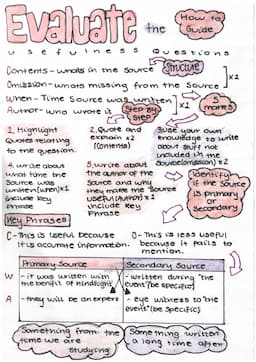 Evaluate the
How to
Guide
usefulness Questions
Contents - whats in the source
Structure
Omission - whats missing from the source
x2
When - Time Source was written
x1
5
marks
Author - who wrote it
Step By
Step
1. Highlight
Quotes relating
to the question.
2. Quote and
explain x2
(contents)
3. use your own
knowledge to write
about stuff not
included in the
source (omission) x2
4. write about
what time the
source was
written (when) x1
include key
Phrase
5. write about
the author of the
source and why
they make the source
useful (Author) x2
include key
Phrase
Identify
if the source
is primary
or
secondary
Key Phrases
C - This is useful because
it is accurate information.
O - This is less useful
because it fails to
mention.
Primary Source
Secondary Source
W
- it was written with
the benifit of hindsight
- written during "the
event" (be specific)
A
- they will be an expert
- eye witness to "the
event" (be specific)
Something from the
time we are
studying
Something written
a long time after